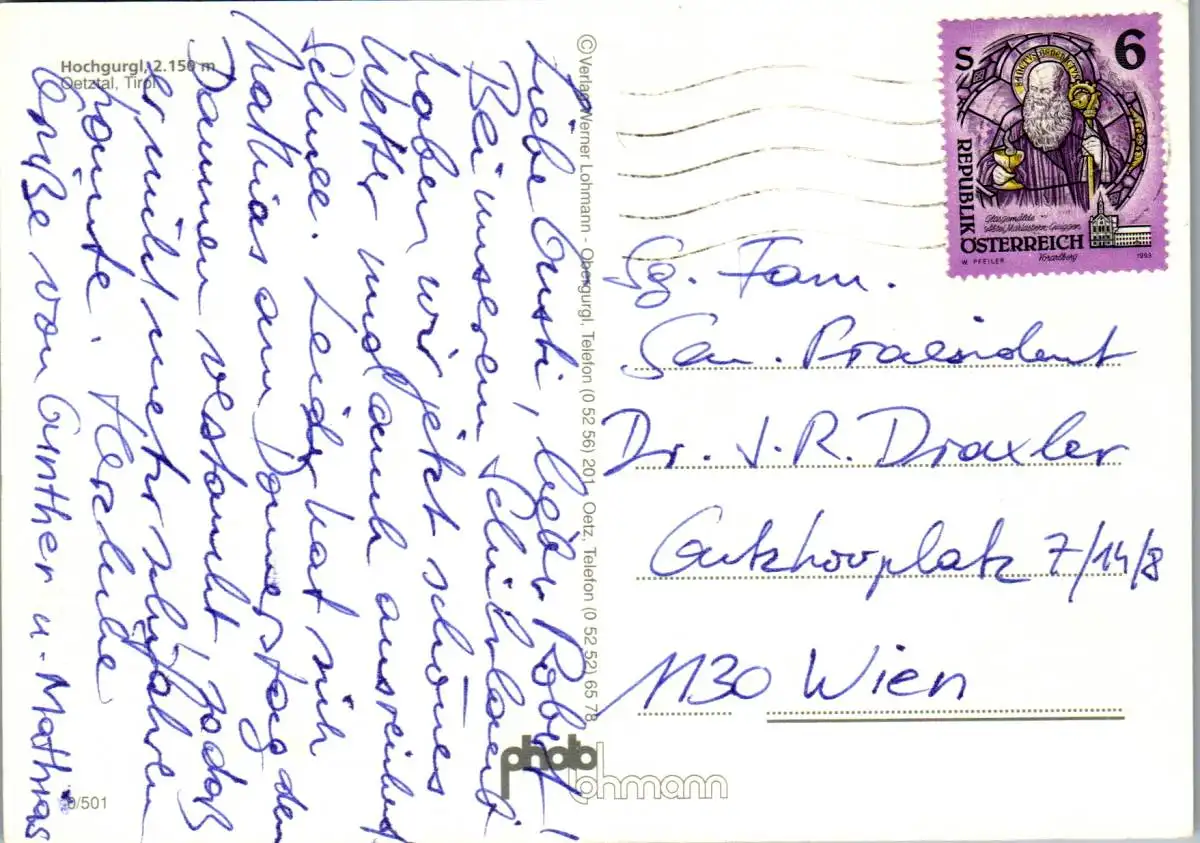 Hochgurgl, 2.150 m
Oetztal, Tirol
Liebe Gusti, lieber Robert!
Bei unserem Schiurlaub
haben wir jetzt schönes
Wetter und auch ausreichend
Schnee. Leider hat sich
Mathias am Donnerstag den
Daumen verstaucht, sodaß
er nicht mehr schifahren
konnte. Herzliche
Grüße von Günther u. Mathias
0/501
© Verlag Werner Lohmann - Obergurgl, Telefon (0 52 56) 201, Oetz, Telefon (0 52 52) 65 78
photo
lohmann
S 6
SANCTUS BENEDICTUS
REPUBLIK
ÖSTERREICH
Glasgemälde
Abtei Mariastern-Gwiggen
Vorarlberg
W. PFEILER
1993
Fam.
Sen. Praesident
Dr. J. R. Draxler
7/14/8
1130 Wien